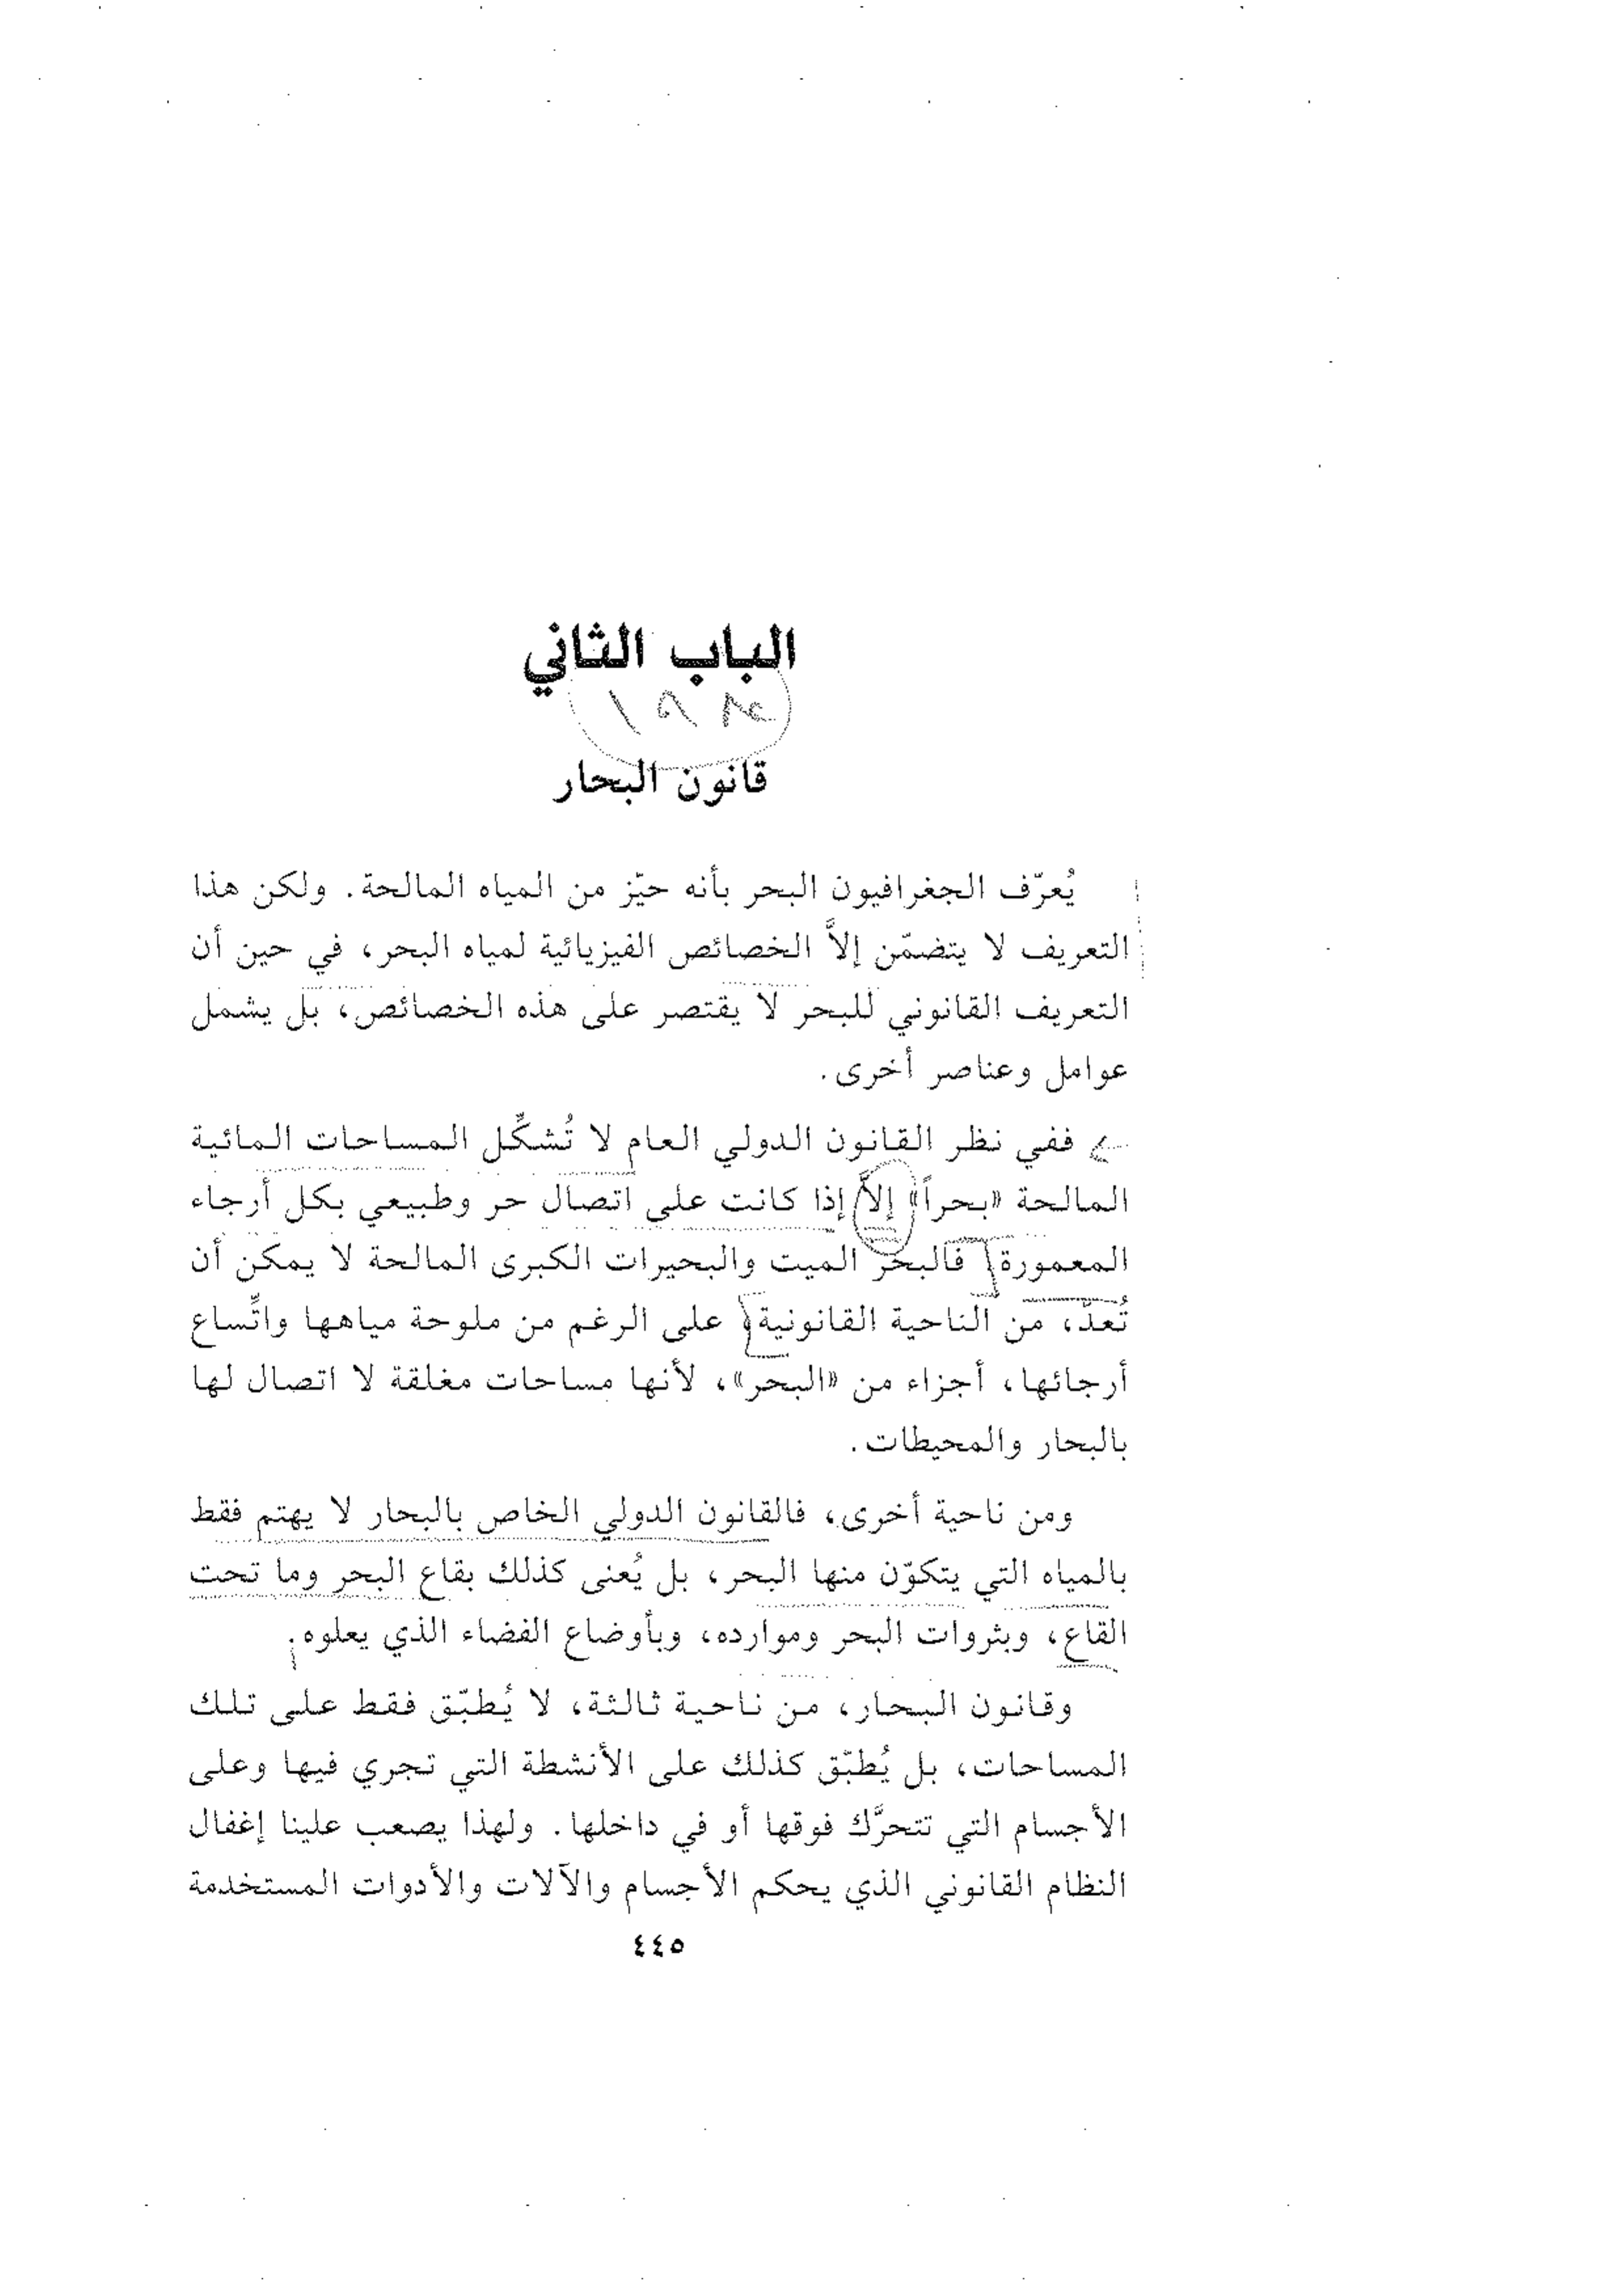 الباب الثاني
قانون البحار
يُعرّف الجغرافيون البحر بأنه حيّز من المياه المالحة. ولكن هذا
التعريف لا يتضمّن إلاَّ الخصائص الفيزيائية لمياه البحر، في حين أن
التعريف القانوني للبحر لا يقتصر على هذه الخصائص، بل يشمل
عوامل وعناصر أخرى.
ففي نظر القانون الدولي العام لا تُشكِّل المساحات المائية
المالحة «بحراً» إلاَّ إذا كانت على اتصال حر وطبيعي بكل أرجاء
المعمورة فالبحر الميت والبحيرات الكبرى المالحة لا يمكن أن
تُعدّ، من الناحية القانونية، على الرغم من ملوحة مياهها واتِّساع
أرجائها، أجزاء من «البحر»، لأنها مساحات مغلقة لا اتصال لها
بالبحار والمحيطات.
ومن ناحية أخرى، فالقانون الدولي الخاص بالبحار لا يهتم فقط
بالمياه التي يتكوّن منها البحر، بل يُعنى كذلك بقاع البحر وما تحت
القاع، وبثروات البحر وموارده، وبأوضاع الفضاء الذي يعلوه.
وقانون البحار، من ناحية ثالثة، لا يُطبّق فقط على تلك
المساحات، بل يُطبّق كذلك على الأنشطة التي تجري فيها وعلى
الأجسام التي تتحرَّك فوقها أو في داخلها. ولهذا يصعب علينا إغفال
النظام القانوني الذي يحكم الأجسام والآلات والأدوات المستخدمة
٤٤٥